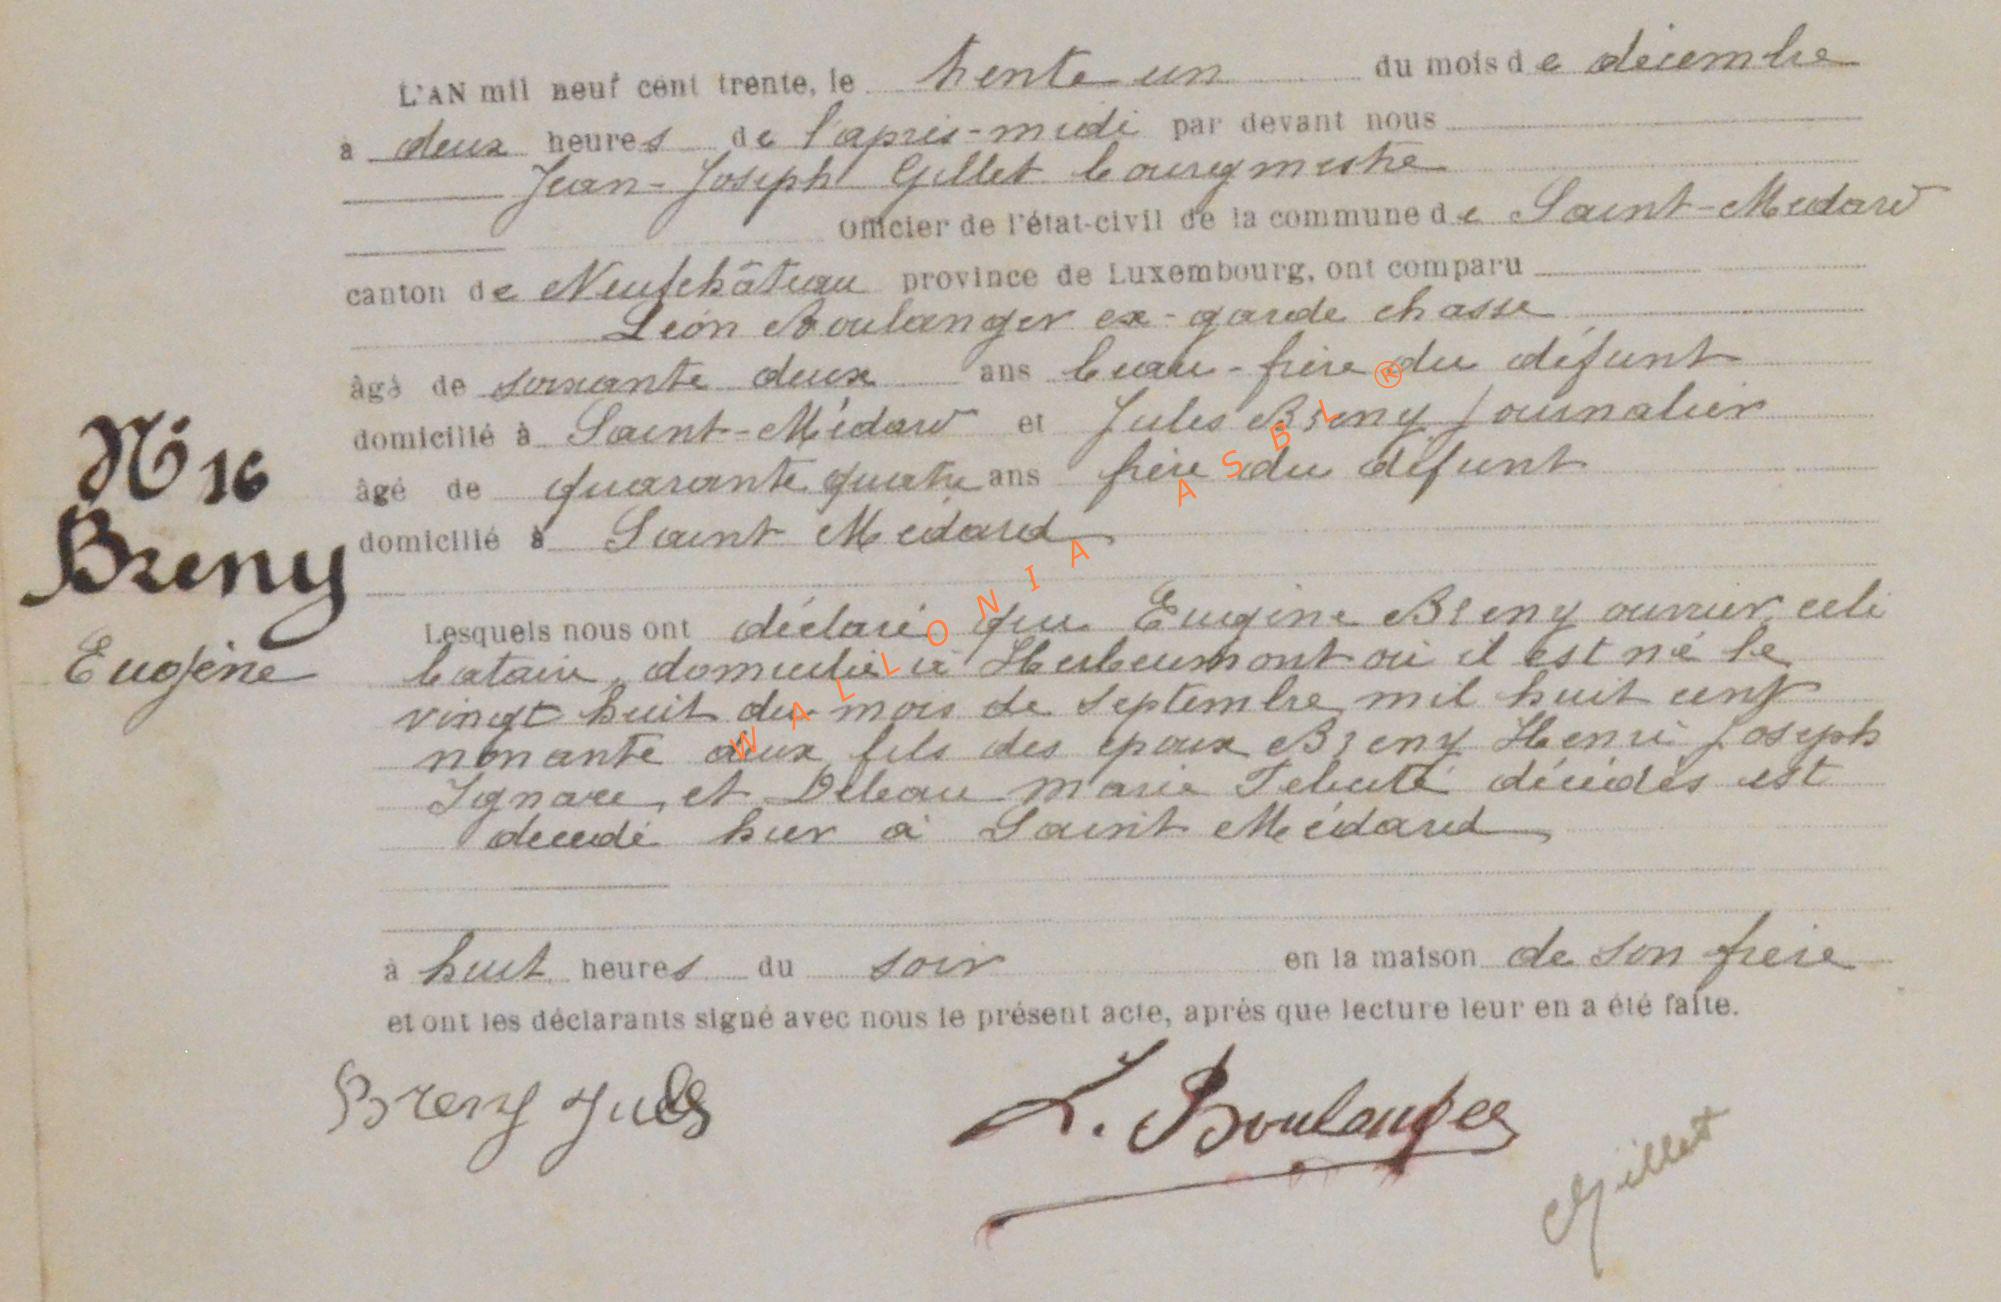 L'AN mil neuf cent trente, le trente un du mois de décembre
à deux heures de l'après-midi par devant nous
Jean-Joseph Gillet bourgmestre
Officier de l'état-civil de la commune de Saint-Médard
canton de Neufchâteau province de Luxembourg, ont comparu
Léon Boulanger ex-garde chasse
âgé de soixante deux ans beau-frère du défunt
domicilié à Saint-Médard et Jules Breny journalier
âgé de quarante quatre ans frère du défunt
domicilié à Saint Médard
N° 16
Breny
Eugène
Lesquels nous ont déclaré que Eugène Breny ouvrier, céli
bataire, domicilié à Herbeumont où il est né le
vingt huit du mois de septembre mil huit cent
nonante deux fils des époux Breny Henri Joseph
Ignace, et Deleau Marie Félicité décédés est
décédé hier à Saint Médard
à huit heures du soir en la maison de son frère
et ont les déclarants signé avec nous le présent acte, après que lecture leur en a été faite.
Breny Jules L. Boulanger Gillet
WALLONIA ASBL ®